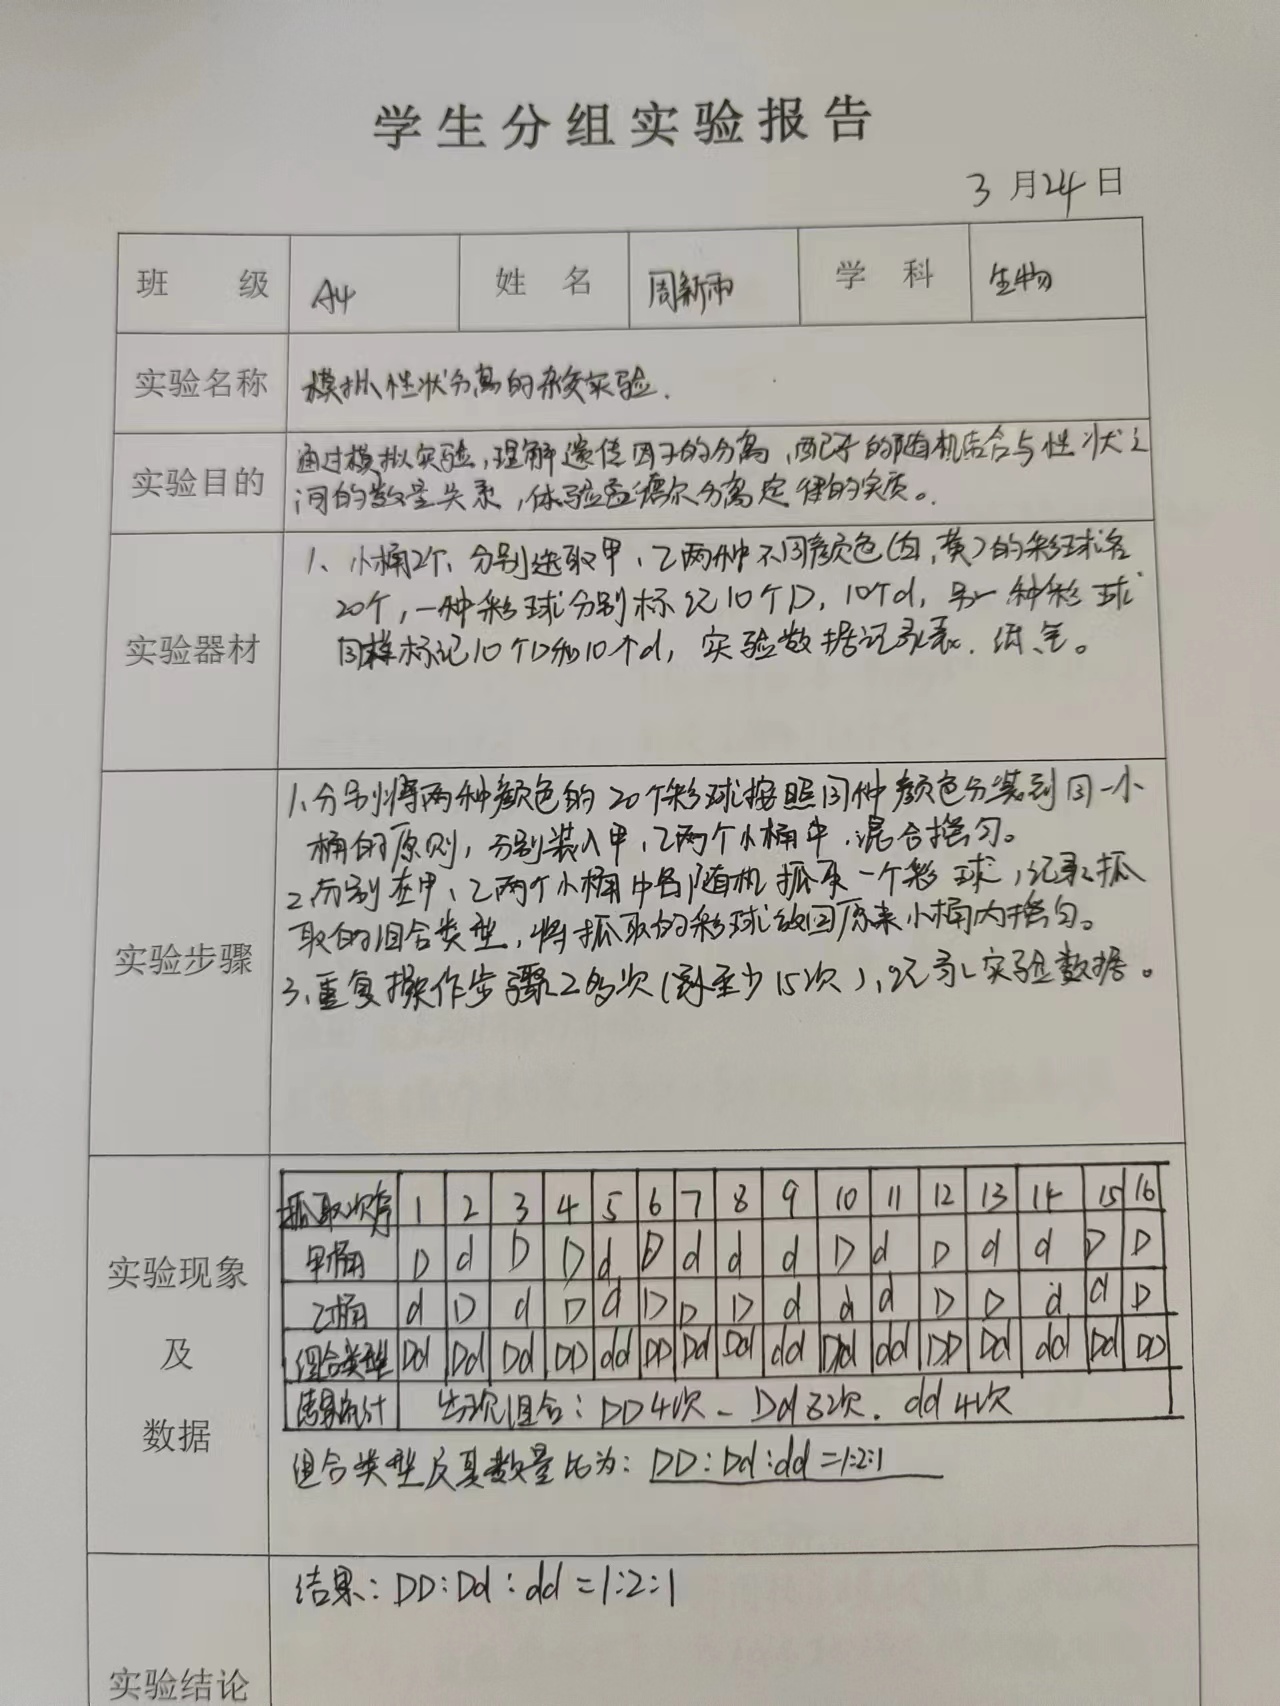 学生分组实验报告
3月24日
班 级 A4 姓 名 周新雨 学 科 生物
实验名称 模拟性状分离的杂交实验.
实验目的
通过模拟实验,理解遗传因子的分离,配子的随机结合与性状之
间的数量关系,体验孟德尔分离定律的实质。
实验器材
1、小桶2个、分别选取甲、乙两种不同颜色(白,黄)的彩球各
20个,一种彩球分别标记10个D,10个d,另一种彩球
同样标记10个D和10个d,实验数据记录表、纸、笔。
实验步骤
1.分别将两种颜色的20个彩球按照同种颜色分装到同一小
桶的原则,分别装入甲,乙两个小桶中,混合摇匀。
2.分别在甲、乙两个小桶中各随机抓取一个彩球,记录抓
取的组合类型,将抓取的彩球放回原来小桶内摇匀。
3.重复操作步骤2多次(到至少15次),记录实验数据。
实验现象
及
数据
抓取次序 1 2 3 4 5 6 7 8 9 10 11 12 13 14 15 16
甲桶 D d D D d D d d d D d D d d D D
乙桶 d D d D d D D D d d d D D d d D
组合类型 Dd Dd Dd DD dd DD Dd Dd dd Dd dd DD Dd dd Dd DD
结果统计 出现组合:DD4次、Dd82次.dd4次
组合类型及其数量比为:DD:Dd:dd=1:2:1
实验结论
结果:DD:Dd:dd=1:2:1